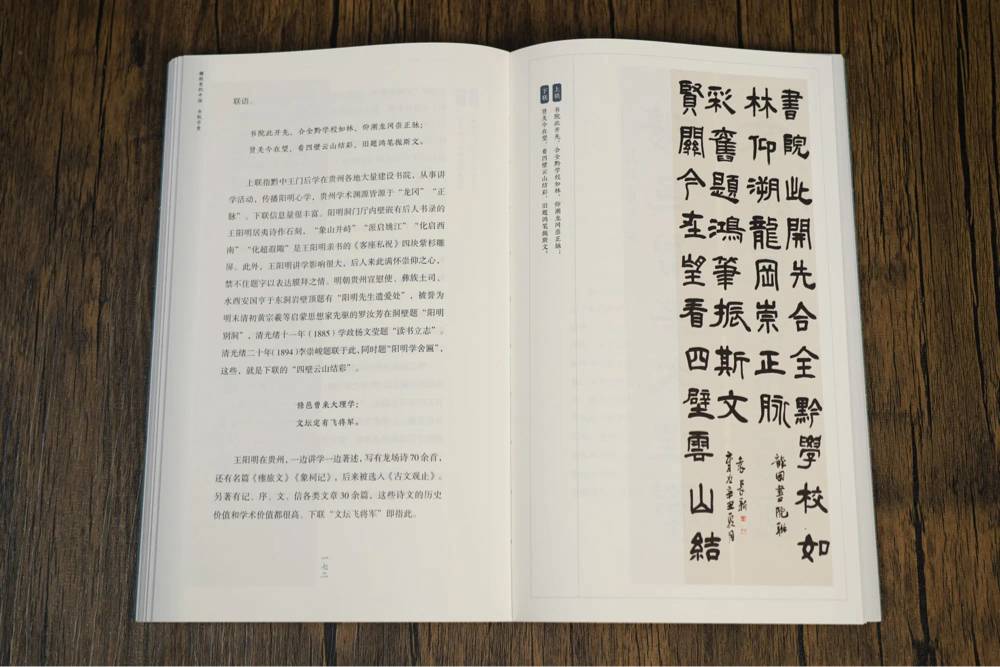 联语。
书院此开先，合全黔学校如林，仰溯龙冈崇正脉；
贤关今在望，看四壁云山结彩，旧题鸿笔振斯文。
上联指黔中王门后学在贵州各地大量建设书院，从事讲
学活动，传播阳明心学，贵州学术渊源皆源于“龙冈”“正
脉”。下联信息量很丰富。阳明洞门厅内壁嵌有后人书录的
王阳明居夷诗作石刻，“象山并峙”“派启姚江”“化启西
南”“化超遐陬”是王阳明亲书的《客座私祝》四块紫杉雕
屏。此外，王阳明讲学影响很大，后人来此满怀崇仰之心，
禁不住题字以表达膜拜之情。明朝贵州宣慰使、彝族土司、
水西安国亨于东洞岩壁顶题有“阳明先生遗爱处”，被誉为
明末清初黄宗羲等启蒙思想家先驱的罗汝芳在洞壁题“阳明
别洞”，清光绪十一年（1885）学政杨文莹题“读书立志”。
清光绪二十年（1894）李崇峻题联于此，同时题“阳明学舍匾”，
这些，就是下联的“四壁云山结彩”。
修邑曾来大理学；
文坛定有飞将军。
王阳明在贵州，一边讲学一边著述，写有龙场诗70余首，
还有名篇《瘗旅文》《象祠记》，后来被选入《古文观止》。
另著有记、序、文、信各类文章30余篇，这些诗文的历史
价值和学术价值都很高。下联“文坛飞将军”即指此。
一七二
上联
书院此开先，合全黔学校如林，仰溯龙冈崇正脉；
下联
贤关今在望，看四壁云山结彩，旧题鸿笔振斯文。
書院此開先合全黔學校如
林仰溯龍岡崇正脉
龍岡書院聯
賢關今在望看四壁雲山結
彩舊題鴻筆振斯文